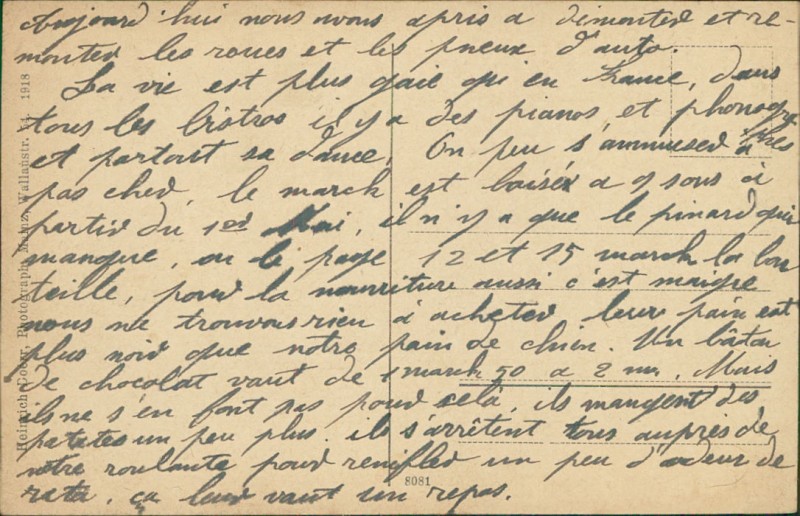 Aujourd'hui nous avons apris a dimonter et re-
monter les roues et les pneux d'auto.
La vie est plus gaie qi en France, dans
tous les bistros il y a des pianos et phonogra
phes
et partout sa dance. On peu s'ammuser a
pas cher, le march est baisér a 9 sous à
partir du 1er Mai, il n'y a que le pinard qui
manque, on le paye 12 et 15 march la bou
teille, pour la nourriture aussi c'est maigre
nous ne trouvons rien à acheter leur pain est
plus noir que notre pain de chien. Un bâton
de chocolat vaut de 1 march 50 a 2 m. Mais
ils ne s'en font pas pour celà, ils mangent des
patates un peu plus. ils s'arrêtent tous auprès de
nôtre roulante pour renifler un peu d'odeur de
rata, ça leur vaut un repas.
8081
Heinrich Goerz, Photograph, Mainz, Wallaustr. 54 1918